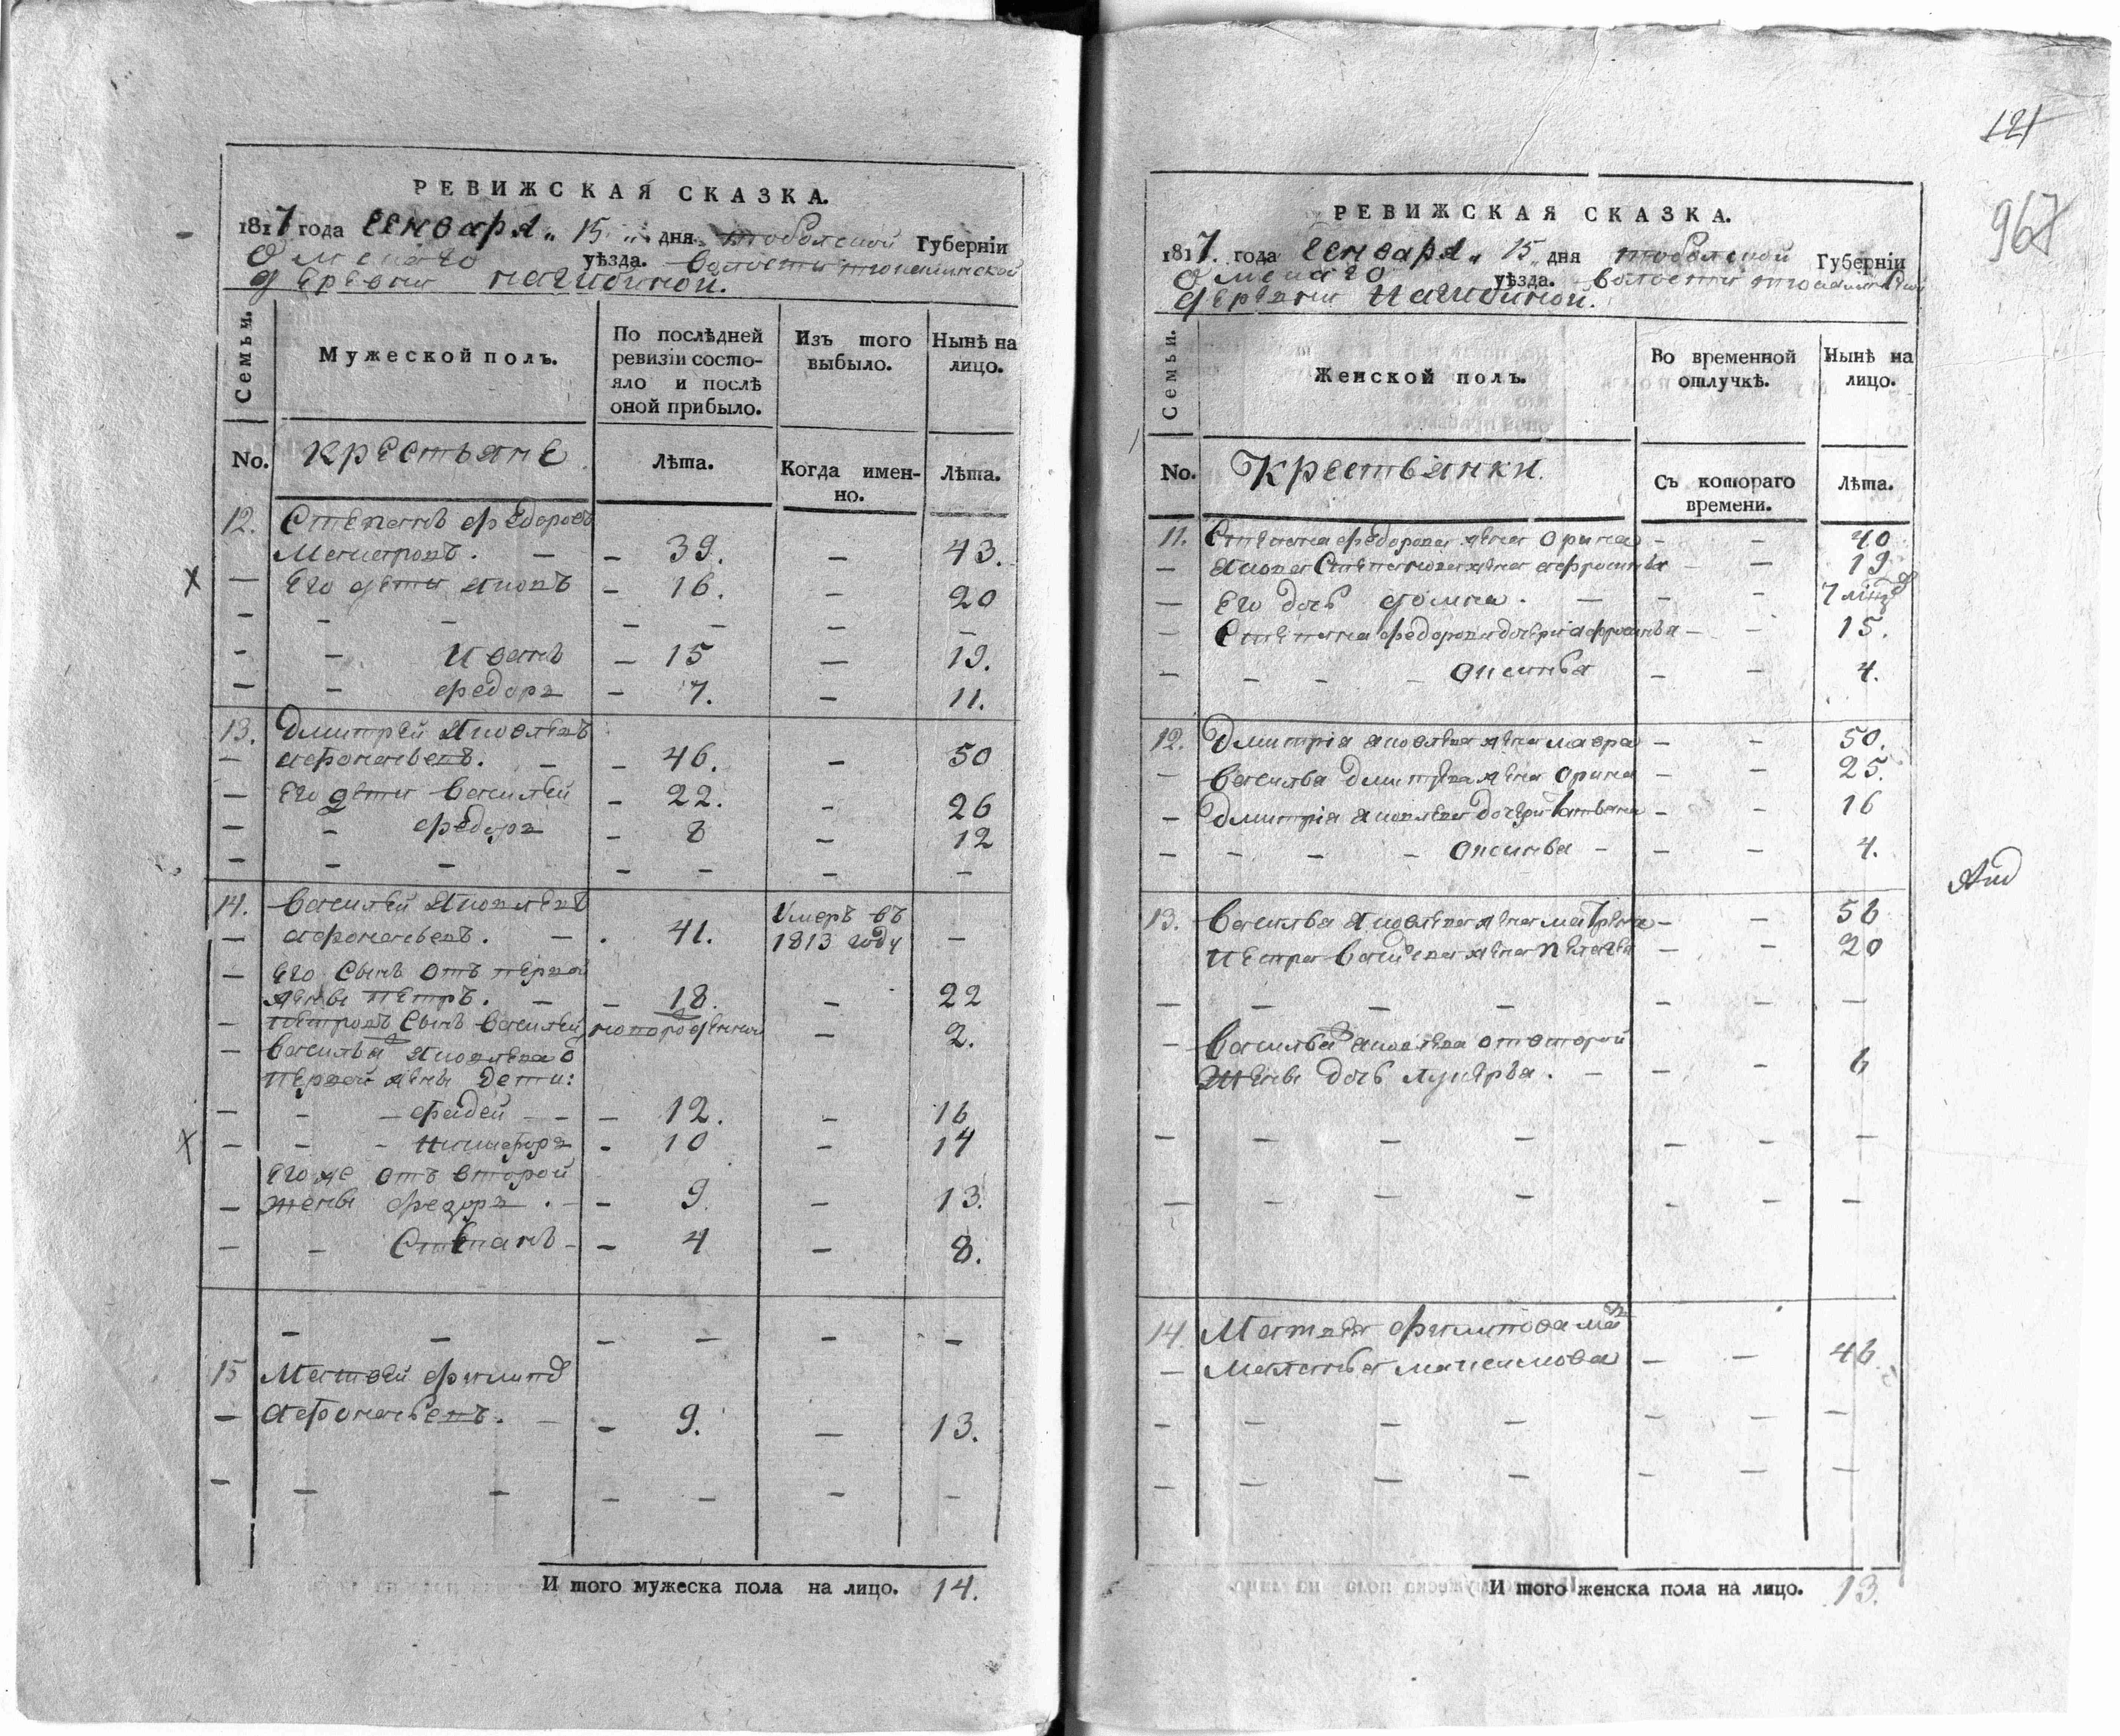 РЕВИЖСКАЯ СКАЗКА.
1817 года Генваря 15 дня Тобольской Губерніи
Омскаго уѣзда. волости
деревни Нагибиной.
Семьи.
Мужеской полъ.
По послѣдней ревизіи состояло и послѣ оной прибыло.
Изъ того выбыло.
Нынѣ на лицо.
No. Крестьяне
Лѣта.
Когда именно.
Лѣта.
12. Степанъ Федоровъ
— — 39. — 43.
— Его дети Яковъ — 16. — 20
— — — — — — —
— — Иванъ — 15 — 19.
— — Федоръ — 7. — 11.
13. Дмитрей Яковлевъ
— Афонасьевъ. — — 46. — 50
— Его дети Василей — 22. — 26
— — Федоръ — 8 — 12
— — — — — — —
14. Василей Яковлевъ Умеръ въ
— Афонасьевъ. — . 41. 1813 году —
— Его сынъ отъ первой
жены Петръ. — — 18. — 22
— Петровъ сынъ Василей новорожденной — 2.
— Василья Яковлева
первой жены дети:
— — — Фадей — — — 12. — 16
— — — Никифоръ — 10 — 14
Его же отъ второй
— жены Федоръ . — — 9. — 13.
— — Степанъ — — 4 — 8.
— — — — — —
15 Матвей Филипов
— Афонасьевъ. — — 9. — 13.
— — — — — — —
И того мужеска пола на лицо. 14.
121
967
РЕВИЖСКАЯ СКАЗКА.
1817. года Генваря 15 дня Тобольской Губерніи
Омскаго уѣзда. волости
деревни Нагибиной.
Семьи.
Женской полъ.
Во временной отлучкѣ.
Нынѣ на лицо.
No. Крестьянки.
Съ котораго времени.
Лѣта.
11. Степана Федорова жена Орина — — 40
— Якова Степанова жена Афросинья — — 19
— Его дочь Домна. — — — 7
— Степана Федорова дочери Афросинья — — 15.
— — — — Аксинья — — 4.
12. Дмитрія Яковлева жена Мавра — — 50.
— Василья Дмитрева жена Орина — — 25.
— Дмитрія Яковлева дочери Татьяна — — 16
— — — — Аксинья — — — 4.
13. Василья Яковлева жена Матрена — — 56
Петра Васильева жена Пелагея — — 20
— — — — — — —
— Василья Яковлева от второй
жены дочь Лукерья. — — — 6
— — — — — — —
— — — — — — —
14. Матвея Филипова мать
— Маланья Максимова — — 46.
— — — — — — —
— — — — — — —
И того женска пола на лицо. 13.